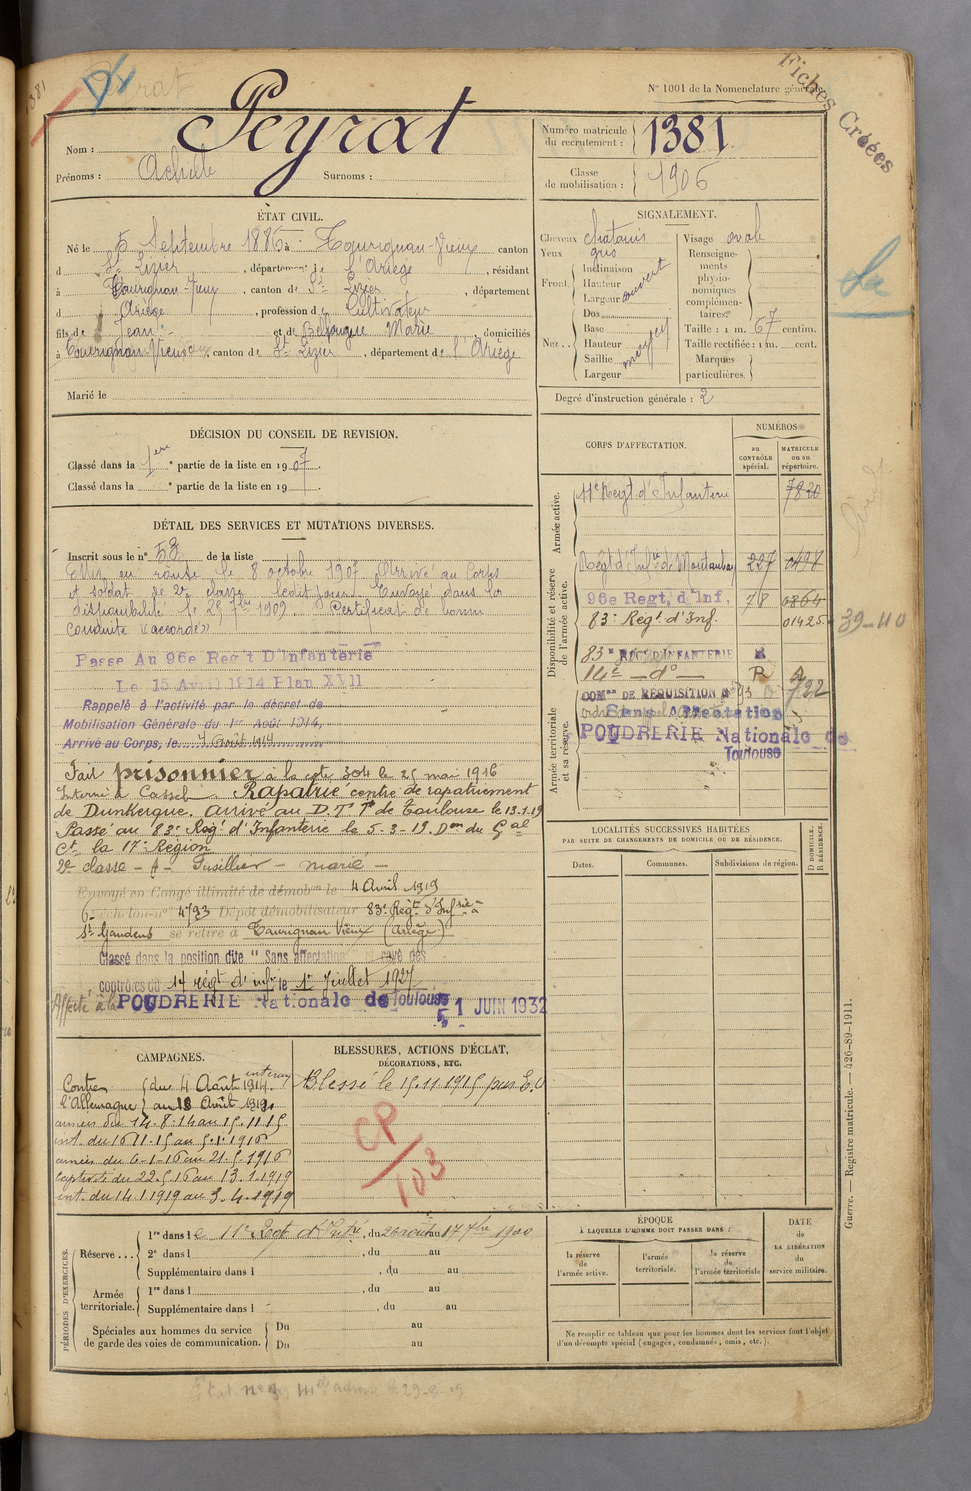 1381
Peyrat
N° 1001 de la Nomenclature générale.
Fiches Créées
Nom : Peyrat
Prénoms : Achille Surnoms :
Numéro matricule du recrutement : 1381
Classe de mobilisation : 1906
ÉTAT CIVIL.
Né le 5 Septembre 1886 à Taurignan-Vieux canton
d St Lizier, département de l'Ariège, résidant
à Taurignan-Vieux, canton de St Lizier, département
d Ariège, profession de Cultivateur
fils de Jean et de Marie, domiciliés
à Taurignan-Vieux, canton de St Lizier, département de l'Ariège
Marié le
SIGNALEMENT.
Cheveux chatains
Yeux gris
Front. Inclinaison
Hauteur
Largeur
ouvert
Nez.. Dos
Base
Hauteur
Saillie
Largeur
moyen
Visage ovale
Renseignements physionomiques complémentaires.
Taille : 1 m. 67 centim.
Taille rectifiée : 1 m. cent.
Marques particulières.
Degré d'instruction générale : 2
DÉCISION DU CONSEIL DE REVISION.
Classé dans la 1ère partie de la liste en 1907.
Classé dans la e partie de la liste en 19 .
DÉTAIL DES SERVICES ET MUTATIONS DIVERSES.
Inscrit sous le n° 53 de la liste
Mis en route le 8 octobre 1907. Arrivé au Corps
et soldat de 2e classe ledit jour. Envoyé dans la
disponibilité le 25 7bre 1909 Certificat de bonne
conduite "accordé"
Passé Au 96e Reg't D'Infanterie
Le 15 Avril 1914 Plan XVII
Rappelé à l'activité par le décret de
Mobilisation Générale du 1er Août 1914,
Arrivé au Corps, le 4 Août 1914
Fait prisonnier à la cote 304 le 25 mai 1916
Interné à Cassel. Rapatrié centre de rapatriement
de Dunkerque. Arrivé au D.T. de Toulouse le 13-1-19
Passé au 83e Rég't d'Infanterie le 5-3-19. Don du Gal
Ct la 17e Région
2e classe - A - Fusillier - marié -
Envoyé en Congé illimité de démobon le 4 Avril 1919
6e échelon n° 4793 Dépôt démobilisateur 83e Regt d'Infrie à
St Gaudens se retire à Taurignan Vieux (Ariège)
Classé dans la position dite "Sans affectation et rayé des
contrôles du 14 régt d'infie le 1er Juillet 1927
Affecté à la POUDRERIE Nationale de Toulouse 1 JUIN 1932
CORPS D'AFFECTATION.
NUMÉROS
au CONTRÔLE spécial.
MATRICULE ou au répertoire.
Armée active.
11e Regt d'Infanterie 7820
Disponibilité et réserve de l'armée active.
Regt d'Infrie de Montauban 227
96e Regt, d'Inf. 78 0864
83e Regt d'Inf. 01425
83e REGT D'INFANTERIE R
14e - d° - R
Armée territoriale et sa réserve.
COMon DE REQUISITION N° 93 722
Sans Affectation
POUDRERIE Nationale de
Toulouse
39-40
LOCALITÉS SUCCESSIVES HABITÉES
PAR SUITE DE CHANGEMENTS DE DOMICILE OU DE RÉSIDENCE.
Dates.
Communes.
Subdivisions de région.
D DOMICILE. R RÉSIDENCE.
CAMPAGNES.
Contre l'Allemagne du 4 Août 1914
au Août 1919
intérieur
armées du 14.8.14 au 15.11.15
int. du 16 11.15 au 5.1.1916
armées du 6-1-16 au 21.5.1916
captivité du 22.5.16 au 13.1.1919
int. du 14.1.1919 au 3.4.1919
BLESSURES, ACTIONS D'ÉCLAT,
DÉCORATIONS, ETC.
Blessé le 15.11.1915 par E.O
CP/103
PÉRIODES D'EXERCICES.
Réserve... 1re dans le 11e Regt d'Infrie, du 26 août au 17 7bre
2e dans l , du au
Supplémentaire dans l , du au
Armée territoriale. 1re dans l , du au
Supplémentaire dans l , du au
Spéciales aux hommes du service de garde des voies de communication. Du au
Du au
ÉPOQUE
À LAQUELLE L'HOMME DOIT PASSER DANS :
la réserve de l'armée active.
l'armée territoriale.
la réserve de l'armée territoriale
DATE de LA LIBÉRATION du service militaire.
Ne remplir ce tableau que pour les hommes dont les services font l'objet
d'un décompte spécial (engagés, condamnés, omis, etc.).
Guerre. — Registre matricule. — 426-89-1911.